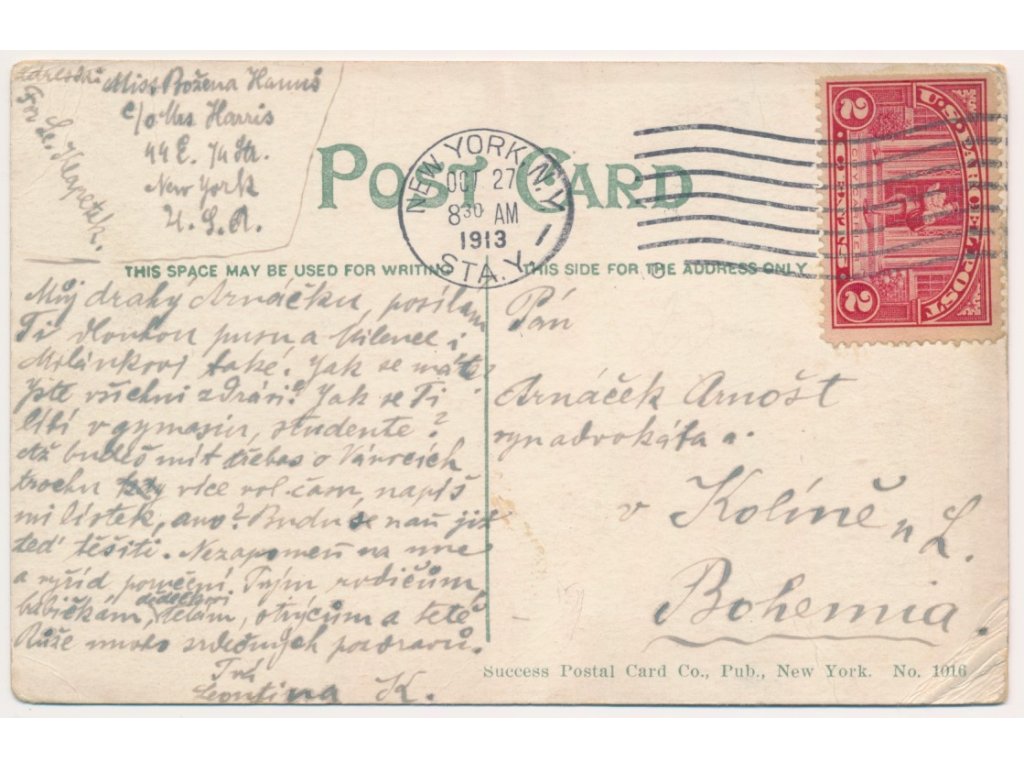 Miss Božena Hanuš
c/o Mrs Harris
44 E. 74 Str.
New York
U. S. A.
For L. Klapetek.
POST CARD
NEW YORK, N.Y.
OCT 27
8 30 AM
1913
STA. Y.
2 U.S. PARCEL POST 2
THIS SPACE MAY BE USED FOR WRITING
THIS SIDE FOR THE ADDRESS ONLY
Můj drahý Arnáčku, posílam
Ti dlouhou pusu a Milence i
Milánkovi také. Jak se máte?
Jste všichni zdrávi? Jak se Ti
líbí v gymasiu, studente?
Až budeš mít třebas o Vánocích
trochu více vol. čas, napiš
mi lístek, ano? Budu se naň již
teď těšiti. Nezapomeň na mne
a vyřiď Tvým rodičům,
babičkám, dědečkovi, strýcům a tetě
Růže mnoho srdečných pozdravů.
Tvá
Leontina K.
Pán
Arnáček Arnošt
syn advokáta
v Kolíně n L.
Bohemia.
Success Postal Card Co., Pub., New York. No. 1016